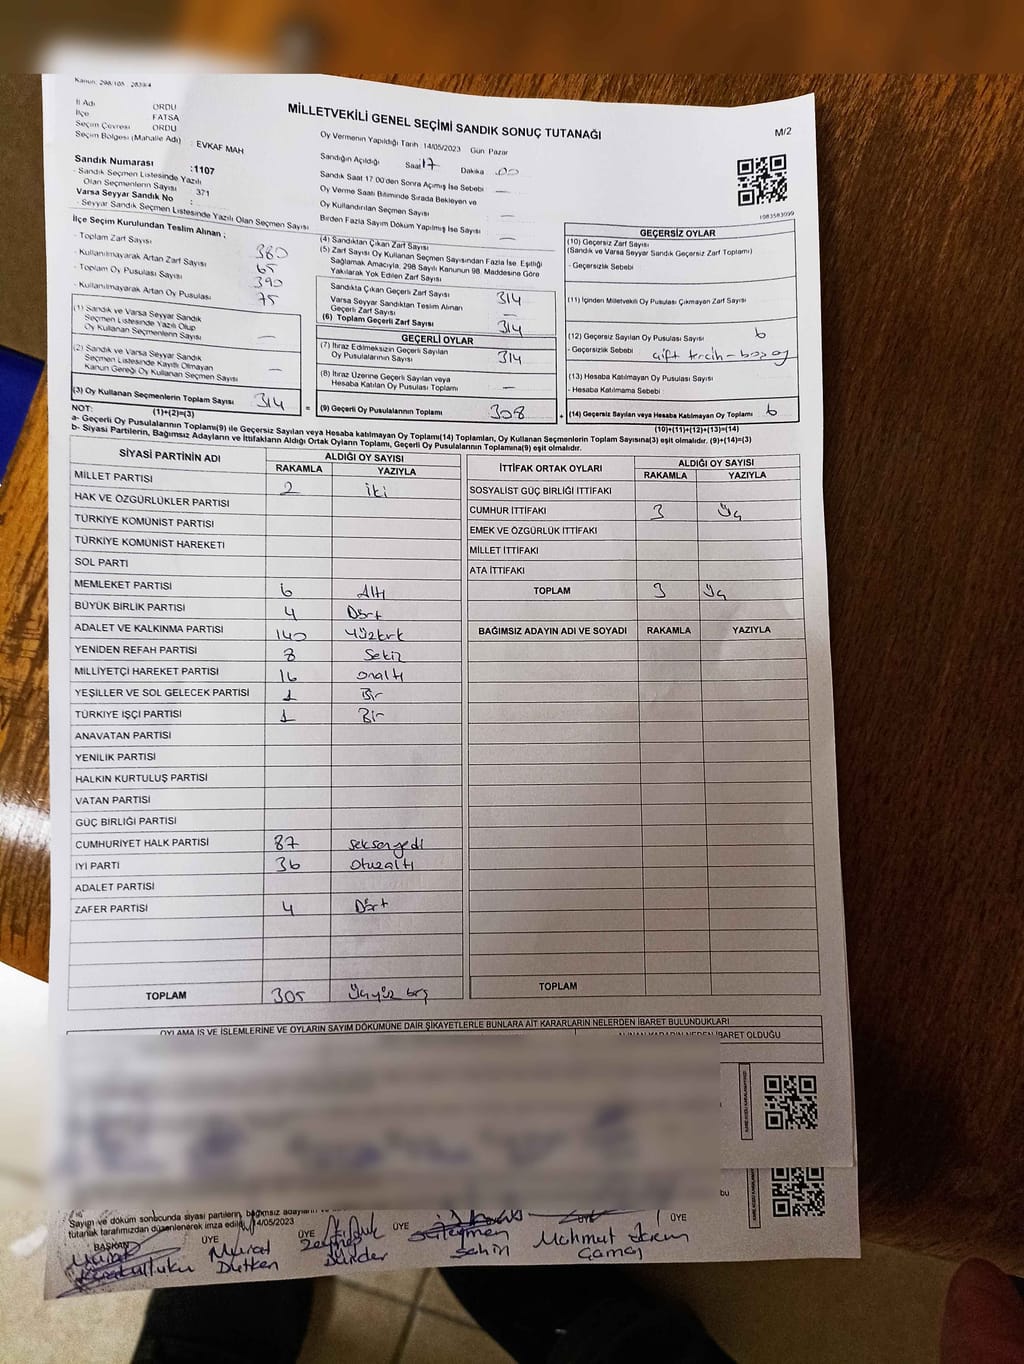 Kanun: 298/105 - 2839/4
İl Adı ORDU
İlçe FATSA
Seçim Çevresi ORDU
Seçim Bölgesi (Mahalle Adı) : EVKAF MAH
MİLLETVEKİLİ GENEL SEÇİMİ SANDIK SONUÇ TUTANAĞI
M/2
Oy Vermenin Yapıldığı Tarih :14/05/2023 Gün Pazar
Sandığın Açıldığı Saat 17 Dakika .00
Sandık Saat 17.00'den Sonra Açılmış İse Sebebi —
Oy Verme Saati Bitiminde Sırada Bekleyen ve
Oy Kullandırılan Seçmen Sayısı —
Birden Fazla Sayım Döküm Yapılmış İse Sayısı —
Sandık Numarası :1107
- Sandık Seçmen Listesinde Yazılı
Olan Seçmenlerin Sayısı 371
Varsa Seyyar Sandık No :
- Seyyar Seçmen Listesinde Yazılı Olan Seçmen Sayısı
1983583099
İlçe Seçim Kurulundan Teslim Alınan ;
- Toplam Zarf Sayısı 380
- Kullanılmayarak Artan Zarf Sayısı 65
- Toplam Oy Pusulası Sayısı 390
- Kullanılmayarak Artan Oy Pusulası 75
(1) Sandık ve Varsa Seyyar Sandık
Seçmen Listesinde Yazılı Olup
Oy Kullanan Seçmenlerin Sayısı —
(2) Sandık ve Varsa Seyyar Sandık
Seçmen Listesinde Kayıtlı Olmayan
Kanun Gereği Oy Kullanan Seçmen Sayısı —
(3) Oy Kullanan Seçmenlerin Toplam Sayısı 314
(1)+(2)=(3)
(4) Sandıktan Çıkan Zarf Sayısı
(5) Zarf Sayısı Oy Kullanan Seçmen Sayısından Fazla İse, Eşitliği
Sağlamak Amacıyla, 298 Sayılı Kanunun 98. Maddesine Göre
Yakılarak Yok Edilen Zarf Sayısı
Sandıkta Çıkan Geçerli Zarf Sayısı 314
Varsa Seyyar Sandıktan Teslim Alınan
Geçerli Zarf Sayısı —
(6) Toplam Geçerli Zarf Sayısı 314
GEÇERLİ OYLAR
(7) İtiraz Edilmeksizin Geçerli Sayılan
Oy Pusulalarının Sayısı 314
(8) İtiraz Üzerine Geçerli Sayılan veya
Hesaba Katılan Oy Pusulası Toplamı —
= (9) Geçerli Oy Pusulalarının Toplamı 308 +
GEÇERSİZ OYLAR
(10) Geçersiz Zarf Sayısı
(Sandık ve Varsa Seyyar Sandık Geçersiz Zarf Toplamı)
- Geçersizlik Sebebi
(11) İçinden Milletvekili Oy Pusulası Çıkmayan Zarf Sayısı
(12) Geçersiz Sayılan Oy Pusulası Sayısı 6
- Geçersizlik Sebebi çift tercih-boş oy
(13) Hesaba Katılmayan Oy Pusulası Sayısı
- Hesaba Katılmama Sebebi
(14) Geçersiz Sayılan veya Hesaba Katılmayan Oy Toplamı 6
(10)+(11)+(12)+(13)=(14)
NOT:
a- Geçerli Oy Pusulalarının Toplamı(9) ile Geçersiz Sayılan veya Hesaba katılmayan Oy Toplamı(14) Toplamları, Oy Kullanan Seçmenlerin Toplam Sayısına(3) eşit olmalıdır. (9)+(14)=(3)
b- Siyasi Partilerin, Bağımsız Adayların ve İttifakların Aldığı Ortak Oyların Toplamı, Geçerli Oy Pusulalarının Toplamına(9) eşit olmalıdır.
SİYASİ PARTİNİN ADI ALDIĞI OY SAYISI
RAKAMLA YAZIYLA
MİLLET PARTİSİ 2 iki
HAK VE ÖZGÜRLÜKLER PARTİSİ
TÜRKİYE KOMÜNİST PARTİSİ
TÜRKİYE KOMÜNİST HAREKETİ
SOL PARTİ
MEMLEKET PARTİSİ 6 Altı
BÜYÜK BİRLİK PARTİSİ 4 Dört
ADALET VE KALKINMA PARTİSİ 140 Yüzkırk
YENİDEN REFAH PARTİSİ 8 Sekiz
MİLLİYETÇİ HAREKET PARTİSİ 16 onaltı
YEŞİLLER VE SOL GELECEK PARTİSİ 1 Bir
TÜRKİYE İŞÇİ PARTİSİ 1 Bir
ANAVATAN PARTİSİ
YENİLİK PARTİSİ
HALKIN KURTULUŞ PARTİSİ
VATAN PARTİSİ
GÜÇ BİRLİĞİ PARTİSİ
CUMHURİYET HALK PARTİSİ 87 seksenyedi
İYİ PARTİ 36 otuzaltı
ADALET PARTİSİ
ZAFER PARTİSİ 4 Dört
TOPLAM 305 Üçyüz beş
İTTİFAK ORTAK OYLARI ALDIĞI OY SAYISI
RAKAMLA YAZIYLA
SOSYALİST GÜÇ BİRLİĞİ İTTİFAKI
CUMHUR İTTİFAKI 3 Üç
EMEK VE ÖZGÜRLÜK İTTİFAKI
MİLLET İTTİFAKI
ATA İTTİFAKI
TOPLAM 3 Üç
BAĞIMSIZ ADAYIN ADI VE SOYADI RAKAMLA YAZIYLA
TOPLAM
OYLAMA İŞ VE İŞLEMLERİNE VE OYLARIN SAYIM DÖKÜMÜNE DAİR ŞİKAYETLERLE BUNLARA AİT KARARLARIN NELERDEN İBARET BULUNDUKLARI
ALINAN KARARIN NEDEN İBARET OLDUĞU
bu
Sayım ve döküm sonucunda siyasi partilerin, bağımsız adayların
tutanak tarafımızdan düzenlenerek imza edildi. 14/05/2023
BAŞKAN ÜYE ÜYE ÜYE ÜYE ÜYE
Murat Süleyman Mahmut
Dutken Şahin Gamaş